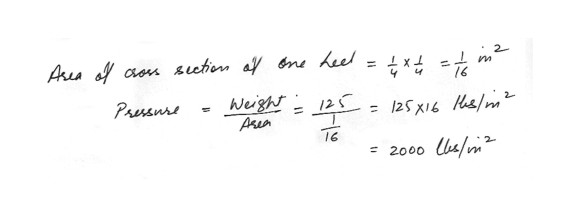 Area of cross section of one heel = 1/4 x 1/4 = 1/16 in²
Pressure = Weight/Area = 125/(1/16) = 125x16 lbs/in²
= 2000 lbs/in²